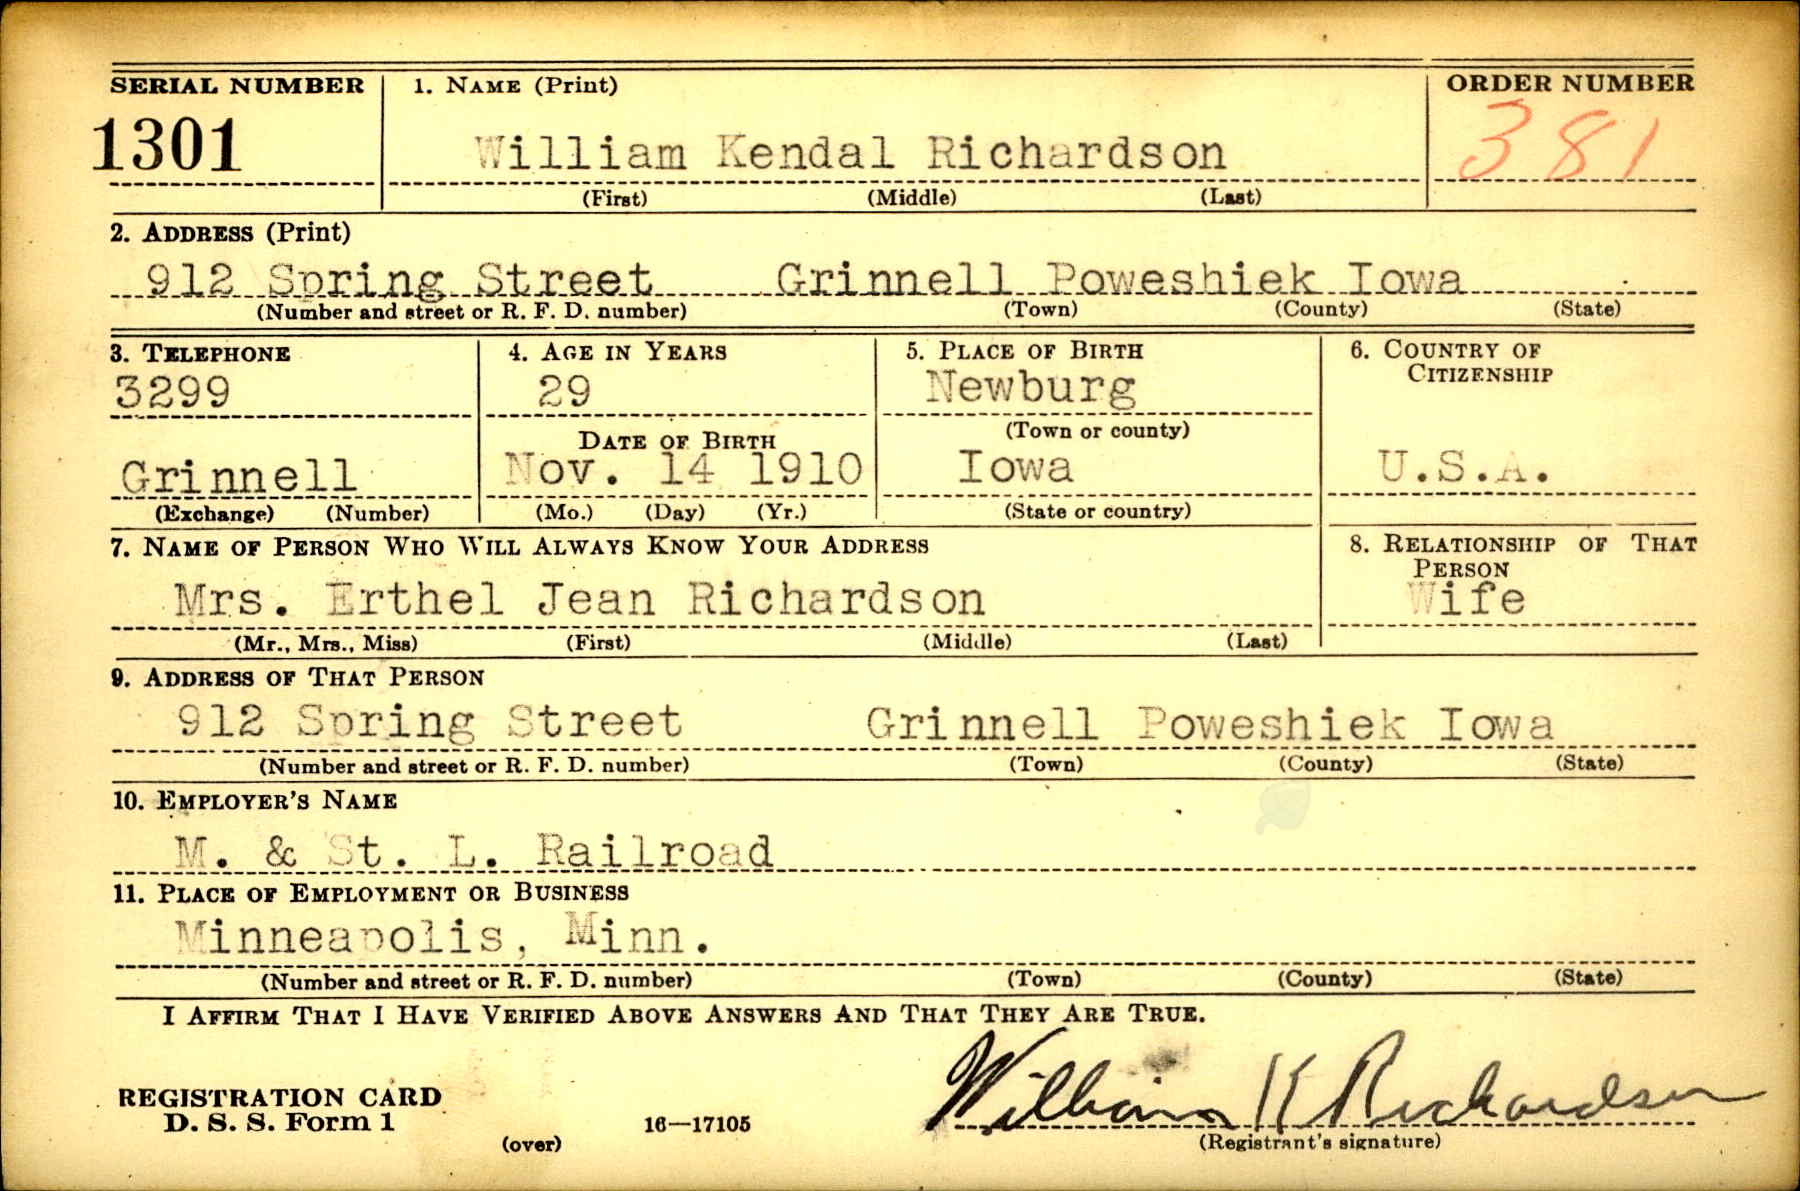 SERIAL NUMBER
1301
1. NAME (Print)
William Kendal Richardson
(First) (Middle) (Last)
ORDER NUMBER
381
2. ADDRESS (Print)
912 Spring Street Grinnell Poweshiek Iowa
(Number and street or R. F. D. number) (Town) (County) (State)
3. TELEPHONE
3299
Grinnell
(Exchange) (Number)
4. AGE IN YEARS
29
DATE OF BIRTH
Nov. 14 1910
(Mo.) (Day) (Yr.)
5. PLACE OF BIRTH
Newburg
(Town or county)
Iowa
(State or country)
6. COUNTRY OF
CITIZENSHIP
U.S.A.
7. NAME OF PERSON WHO WILL ALWAYS KNOW YOUR ADDRESS
Mrs. Erthel Jean Richardson
(Mr., Mrs., Miss) (First) (Middle) (Last)
8. RELATIONSHIP OF THAT
PERSON
Wife
9. ADDRESS OF THAT PERSON
912 Spring Street Grinnell Poweshiek Iowa
(Number and street or R. F. D. number) (Town) (County) (State)
10. EMPLOYER'S NAME
M. & St. L. Railroad
11. PLACE OF EMPLOYMENT OR BUSINESS
Minneapolis, Minn.
(Number and street or R. F. D. number) (Town) (County) (State)
I AFFIRM THAT I HAVE VERIFIED ABOVE ANSWERS AND THAT THEY ARE TRUE.
REGISTRATION CARD
D. S. S. Form 1
(over)
16—17105
William K Richardson
(Registrant's signature)